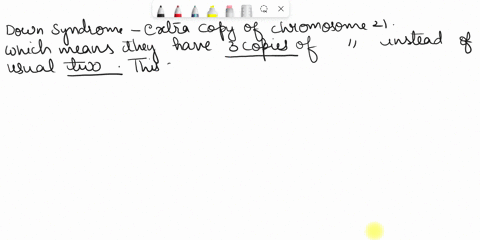 Down Syndrome - extra copy of chromosome 21.
which means they have 3 copies of " instead of
usual two. This -